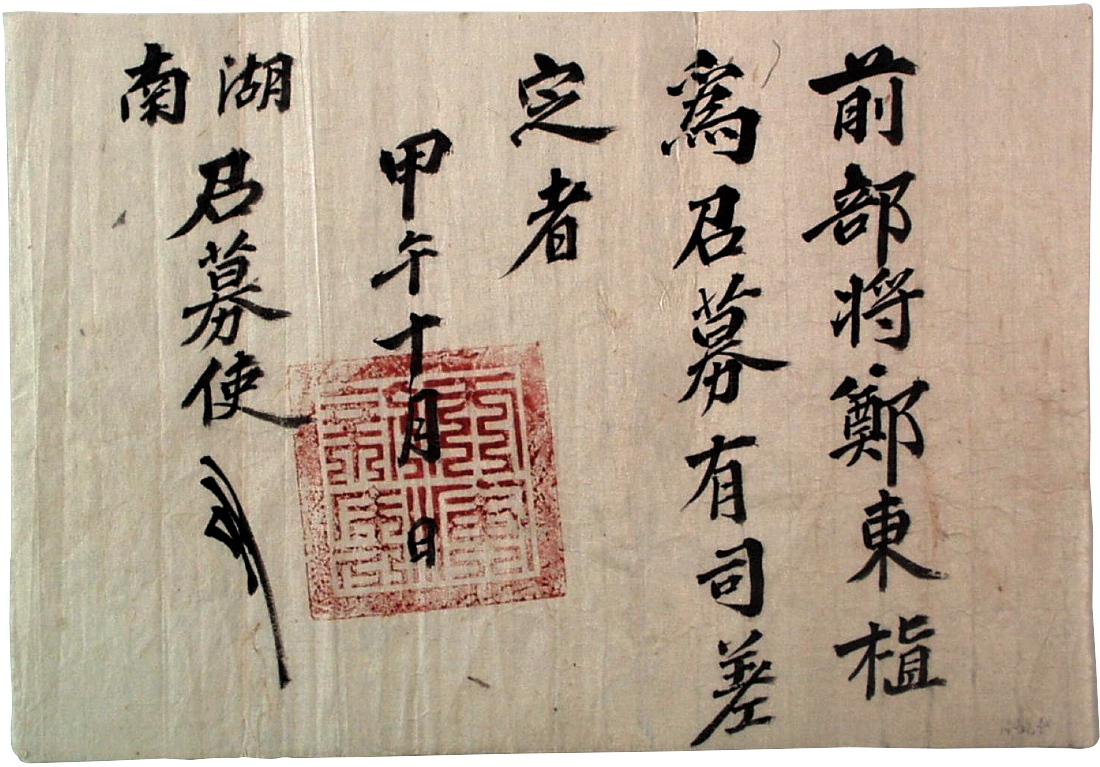 前部将鄭東植
爲召募有司差
定者
甲午十月 日
湖南召募使